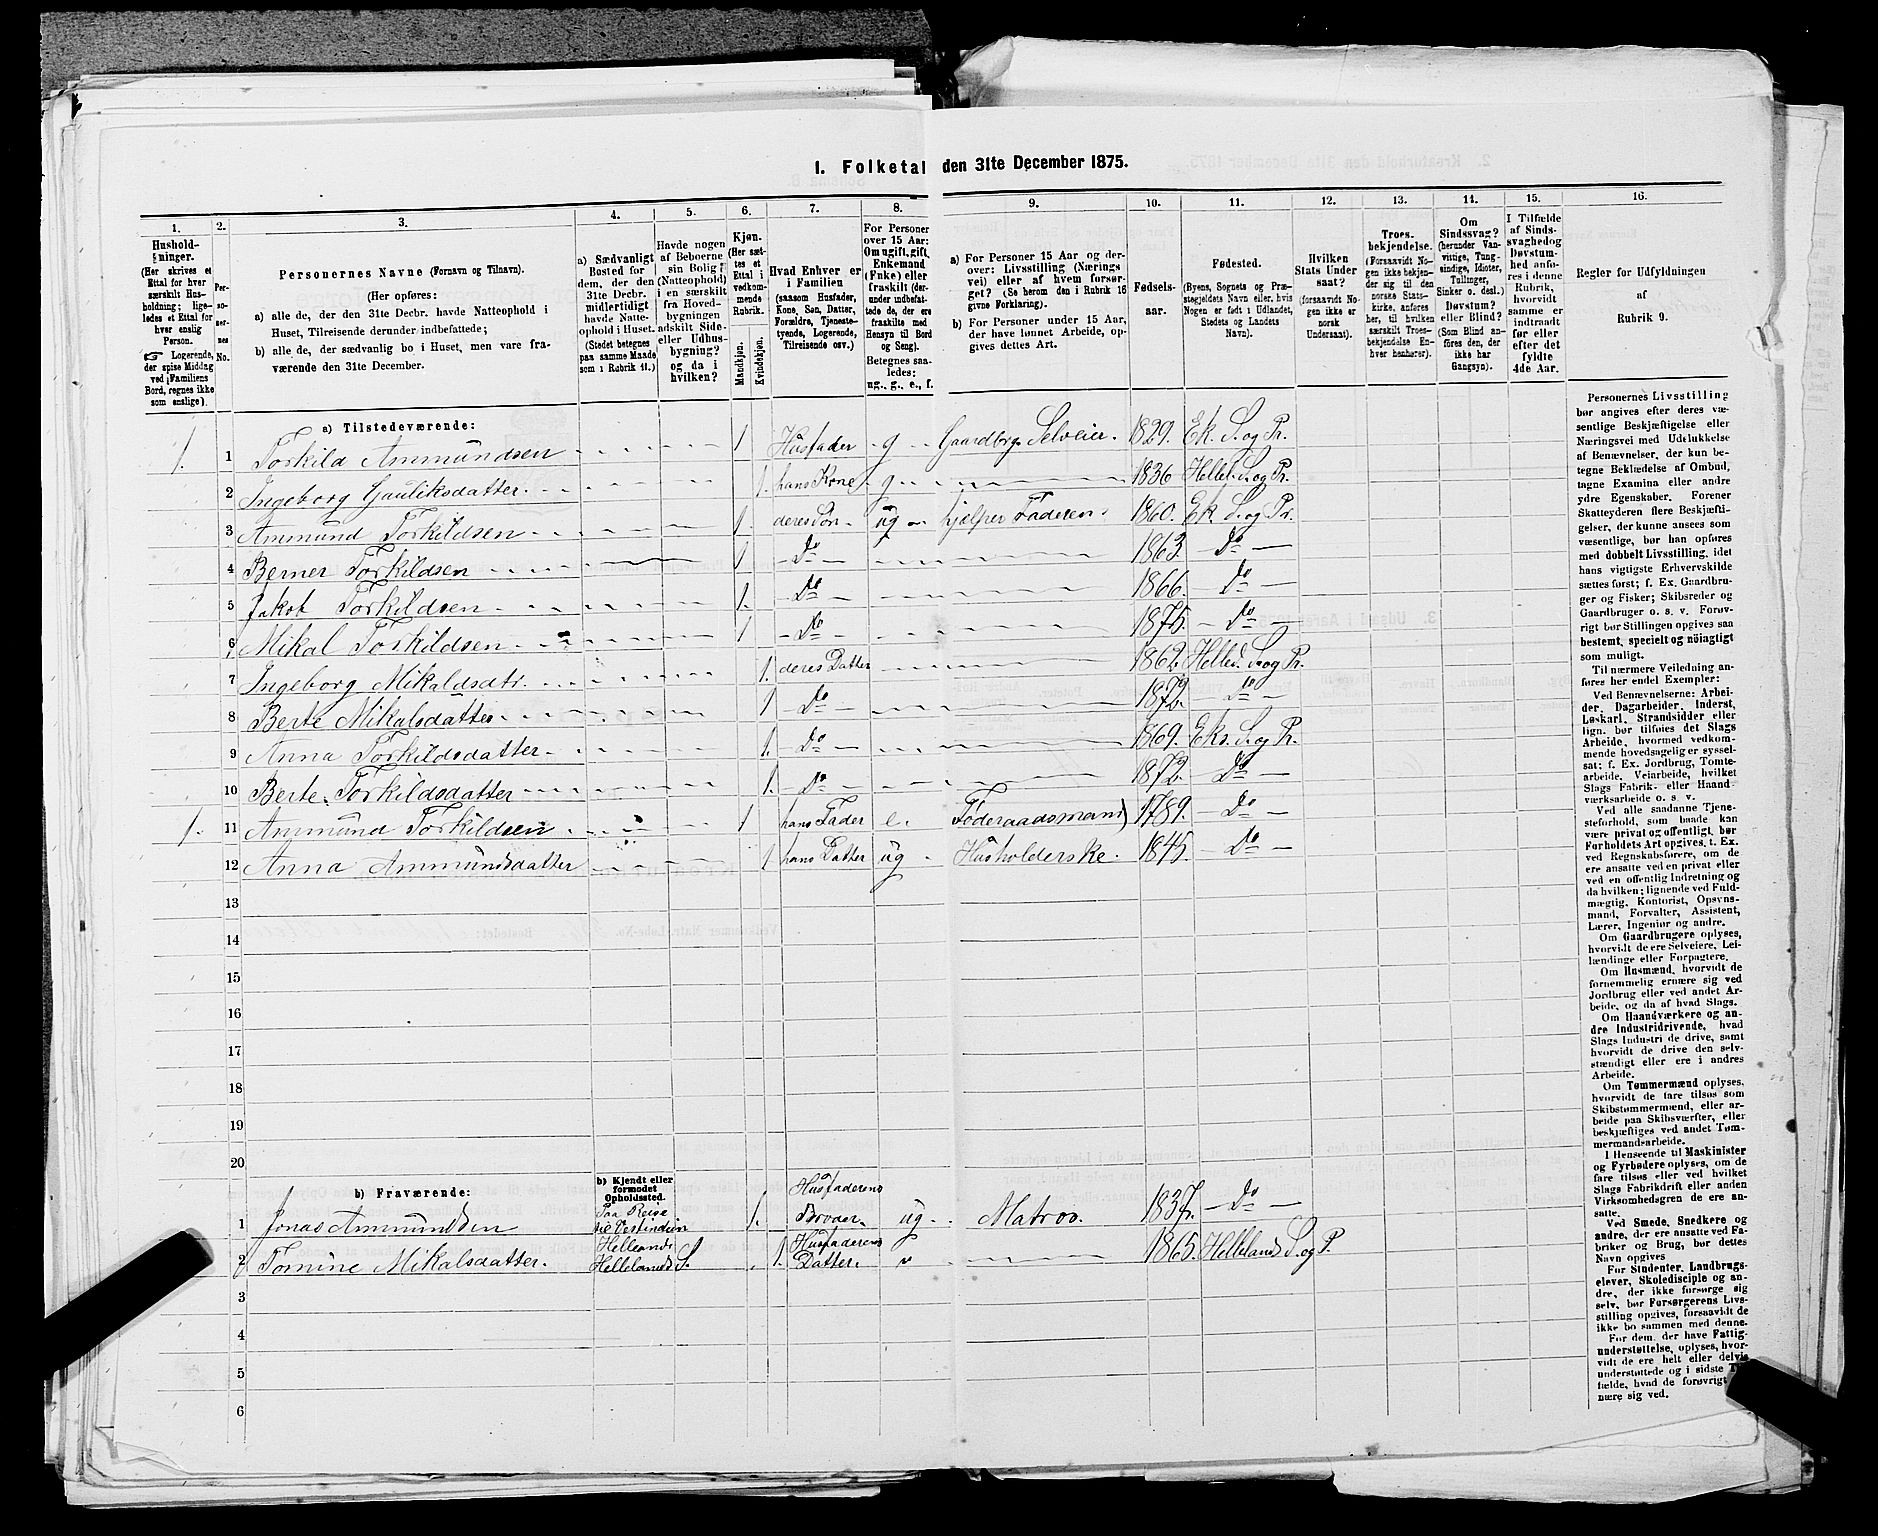 1. Folketal den 31te December 1875.
1.
2.
3.
4.
5.
6.
7.
8.
9.
10.
11.
12.
13.
14.
15.
16.
Hushold-
ninger.
(Her skrives et
Ettal for hver
særskilt Hus-
holdning; lige-
ledes et Ettal for
hver enslig
Person.
☞ Logerende,
der spise Middag
ved Familiens
Bord, regnes ikke
som enslige).
Per-
so-
ner-
nes
No.
Personernes Navne (Fornavn og Tilnavn).
(Her opføres:
a) alle de, der den 31te Decbr. havde Natteophold i
Huset, Tilreisende derunder indbefattede;
b) alle de, der sædvanlig bo i Huset, men vare fra-
værende den 31te December.
a) Sædvanligt
Bosted for
dem, der den
31te Decbr.
midlertidigt
havde Natte-
ophold i Huset.
(Stedet betegnes
paa samme Maade
som i Rubrik 11.)
Havde nogen
af Beboerne
sin Bolig
(Natteophold)
i en særskilt
fra Hoved-
bygningen
adskilt Side-
eller Udhus-
bygning?
og da i
hvilken?
Kjøn.
(Her sæt-
tes et
Ettal i
vedkom-
mende
Rubrik.
Mandkjøn.
Kvindekjøn.
Hvad Enhver er
i Familien
(saasom Husfader,
Kone, Søn, Datter,
Forældre, Tjeneste-
tyende, Logerende,
Tilreisende osv.)
For Personer
over 15 Aar:
Om ugift, gift,
Enkemand
(Enke) eller
fraskilt (der-
under indbefat-
tede de, der ere
fraskilte med
Hensyn til Bord
og Seng).
Betegnes saa-
ledes:
ug., g., e., f.
a) For Personer 15 Aar og der-
over: Livsstilling (Nærings-
vei) eller af hvem forsør-
get? (Se herom den i Rubrik 16
givne Forklaring).
b) For Personer under 15 Aar,
der have lønnet Arbeide, op-
gives dettes Art.
Fødsels-
aar.
Fødested.
(Byens, Sognets og Præ-
stegjeldets Navn eller, hvis
Nogen er født i Udlandet,
Stedets og Landets
Navn).
Hvilken
Stats Under-
saat?
(forsaavidt No-
gen ikke er
norsk
Undersaat).
Troes-
bekjendelse.
(Forsaavidt No-
gen ikke bekjen-
der sig til den
norske Stats-
kirke, anføres
her, til hvilken
særskilt Troes-
bekjendelse En-
hver henhører).
Om
Sindssvag?
(herunder Van-
vittige, Tung-
sindige, Idioter,
Tullinger,
Sinker o. desl.)
Døvstum?
eller Blind?
(Som Blind an-
føres den, der
ikke har
Gangsyn).
I Tilfælde
af Sinds-
svaghed og
Døvstum-
hed anfø-
res i denne
Rubrik,
hvorvidt
samme er
indtraadt
før eller
efter det
fyldte
4de Aar.
Regler for Udfyldningen
af
Rubrik 9.
a) Tilstedeværende:
1. 1 Torkild Ammundsen 1 Husfader g Gaardbrg. Selveier. 1829. Ek. S. og Pr.
2 Ingeborg Gauliksdatter. 1. hans Kone g 1836 Hellel. S. og Pr.
3 Ammund Torkildsen 1. deres Søn ug hjelper Faderen. 1860. Ek. S. og Pr.
4 Berner Torkildsen 1 Do 1863. Do
5 Jakob Torkildsen 1. Do 1866. Do
6 Mikal Torkildsen 1 Do 1875. Do
7 Ingeborg Mikaldsdtr. 1. deres Datter 1862. Helled. S. og Pr.
8 Berte Mikalsdatter 1 Do 1872. Do
9 Anna Torkildsdatter 1. Do 1869. Eks. S. og Pr.
10 Berte Torkildsdatter 1. Do 1872. Do
1. 11 Ammund Torkildsen 1 hans Fader e. Føderaadsmand 1789. Do
12 Anna Ammundsdatter 1. hans Datter ug Husholderske. 1845. Do
13
14
15
16
17
18
19
20
b) Fraværende:
b) Kjendt eller
formodet
Opholdssted.
1 Jonas Ammundsen Paa Reise til Vestindien 1. Husfaderens Broder. ug. Matros. 1837. Do
2 Tomine Mikalsdatter. Helleand Hellelands S. 1. Husfaderens Datter. 1865. Hellelands S. og P.
3
4
5
6
Personernes Livsstilling
bør angives efter deres væ-
sentlige Beskjæftigelse eller
Næringsvei med Udelukkelse
af Benævnelser, der kun be-
tegne Beklædelse af Ombud,
tagne Examina eller andre
ydre Egenskaber. Forener
Skatteyderen flere Beskjæfti-
gelser, der kunne ansees som
væsentlige, bør han opføres
med dobbelt Livsstilling, idet
hans vigtigste Erhvervskilde
sættes først; f. Ex. Gaardbru-
ger og Fisker; Skibsreder og
Gaardbruger o. s. v. Forøv-
rigt bør Stillingen opgives saa
bestemt, specielt og nøiagtigt
som muligt.
Til nærmere Veiledning an-
føres her endel Exempler:
Ved Benævnelserne: Arbei-
der, Dagarbeider, Inderst,
Løskarl, Strandsidder eller
lign. bør tilføies det Slags
Arbeide, hvormed vedkom-
mende hovedsagelig er syssel-
sat; f. Ex. Jordbrug, Tomte-
arbeide, Veiarbeide, hvilket
Slags Fabrik- eller Haand-
værksarbeide o. s. v.
Ved alle saadanne Tjene-
steforhold, som baade kan
være privat og offentligt, bør
Forholdets Art opgives, t. Ex.
ved Regnskabsførere, om de
ere ansatte ved en privat eller
ved en offentlig Indretning og
da hvilken; lignende ved Fuld-
mægtig, Kontorist, Opsyns-
mand, Forvalter, Assistent,
Lærer, Ingeniør og andre.
Om Gaardbrugere oplyses,
hvorvidt de ere Selveiere, Lei-
lændinge eller Forpagtere.
Om Husmænd, hvorvidt de
fornemmelig ernære sig ved
Jordbrug eller ved andet Ar-
beide, og da af hvad Slags.
Om Haandværkere og an-
dre Industridrivende, hvad
Slags Industri de drive, samt
hvorvidt de drive den selv-
stændigt eller ere i andres
Arbeide.
Om Tømmermænd oplyses,
hvorvidt de fare tilsøs som
Skibstømmermænd, eller ar-
beide paa Skibsværfter, eller
beskjæftiges ved andet Tøm-
mermandsarbeide.
I Henseende til Maskinister
og Fyrbødere oplyses, om de
fare tilsøs eller ved hvilket
Slags Fabrikdrift eller anden
Virksomhedsgren de ere an-
satte.
Ved Smede, Snedkere og
andre, der ere ansatte ved Fa-
briker og Brug, bør dettes
Navn opgives
For Studenter, Landbrugs-
elever, Skoledisciple og an-
dre, der ikke forsørge sig
selv, bør Forsørgerens Livs-
stilling opgives, forsaavidt de
ikke bo sammen med denne.
For dem, der have Fattig-
understøttelse, oplyses, hvor-
vidt de ere helt eller delvis
understøttede og i sidste
fælde, hvad de forøvrigt
nære sig ved.